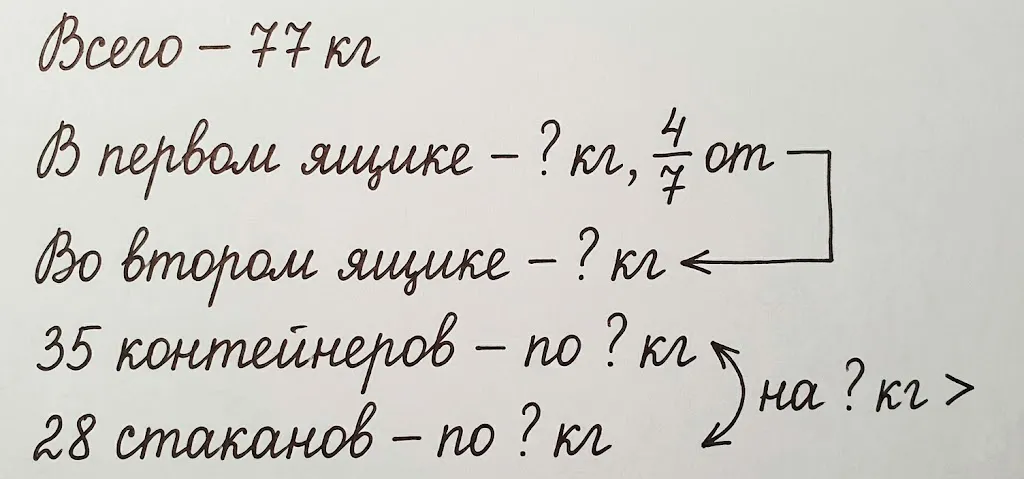 Всего – 77 кг
В первом ящике – ? кг, 4/7 от
Во втором ящике – ? кг
35 контейнеров – по ? кг
на ? кг >
28 стаканов – по ? кг